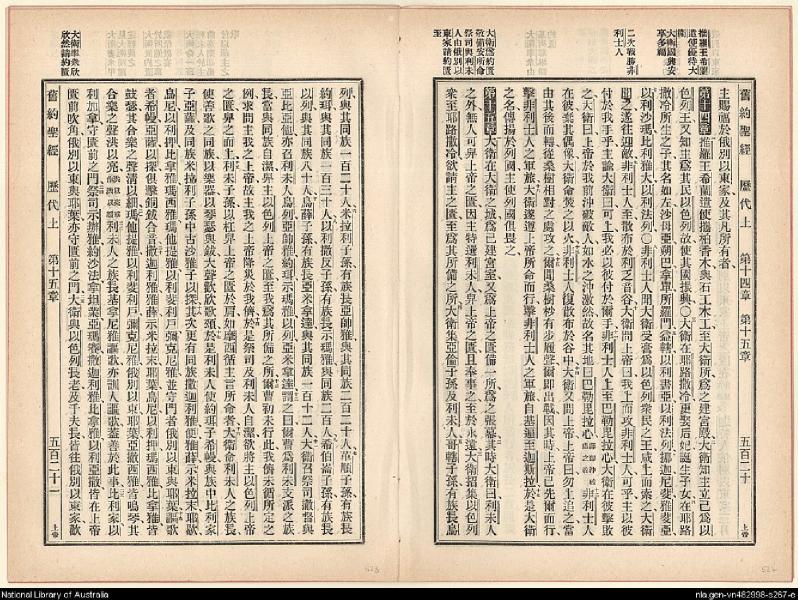 推羅王希蘭
遣使優待大
衛
大衛國興安
享多福
二次戰勝非
利士人
大衛為約匱
備安所命
祭司與利未
人由俄別以
東家請約匱
至
舊約聖經 歷代上 第十四章 第十五章 五百二十 上帝
主賜福於俄別以東家、及其凡所有者、
第十四章 推羅王希蘭遣使、攜柏香木與石工木工至大衛所、為之建宮殿、大衛知主立己為以
色列王、又知主為其民以色列故、使其國振興、○大衛在耶路撒冷更娶后妃、誕生子女、在耶路
撒冷所生之子、其名如左、沙母亞、朔巴、拿單、所羅門、益轄、以利書亞、以法列、挪迦、尼斐、雅斐亞、
以利沙瑪、比利雅大、以利法列、○非利士人聞大衛受膏為以色列衆民之王、咸上而索之、大衛
聞之、遂往迎敵、非利士人至、散布於利乏音谷、大衛問上帝曰、我上而攻非利士人可乎、主以彼
付於我手乎、主諭大衛曰、可上、我必以彼付於爾手、非利士人上至巴勒毘拉心、大衛在彼擊敗
之、大衛曰、上帝於我前沖破敵人、如水之沖激、然故名其地曰巴勒毘拉心、非利士人
在彼棄其偶像、大衛命焚之以火、非利士人復散布於谷中、大衛又問上帝、上帝曰、勿上追之、當
由其後而轉、從桑林相對之處攻之、爾聞桑樹杪有步履聲、爾即出戰、因其時上帝已先爾而行、
擊非利士人之軍旅、大衛遂遵上帝所命而行、擊非利士人之軍旅、自基遍至迦斯拉、於是大衛
之名傳揚於列國、主使列國俱畏之、
第十五章 大衛在大衛之城、為己建宮室、又為上帝之匱、備一所、為之張幕、其時大衛曰、利未人
之外、無人可舁上帝之匱、因主特選利未人、舁上帝之匱、且奉事之、至於永遠、大衛招集以色列
衆至耶路撒冷、欲請主之匱、至為其所備之所、大衛集亞倫子孫及利未人、哥轄子孫、有族長烏
大衛率衆欣
欣然請約匱
列、與其同族一百二十人、米拉利子孫、有族長亞帥雅、與其同族二百二十人、革順子孫、有族長
約珥、與其同族一百三十人、以利撒反子孫、有族長示瑪雅、與其同族二百人、希伯崙子孫、有族長
以列、與其同族八十人、烏薛子孫、有族長亞米拿達、與其同族一百十二人、大衛召祭司撒督與
亞比亞他、亦召利未人烏列、亞帥雅、約珥、示瑪雅、以列、亞米拿達、謂之曰、爾曹為利未支派之族
長、當與同族自潔、舁主以色列上帝之匱、至我為其所備之所、爾曹初未行此、我儕未循所定之
例求問主我之上帝、故主我之上帝降災於我儕、於是祭司及利未人自潔、欲將主以色列上帝
之匱舁而上、利未子孫以杠舁上帝之匱於肩、如摩西循主言所命者、大衛命利未人之族長、
使善歌之同族、以樂器以琴瑟與鈸、大聲歡欣歌頌、於是利未人使約珥子希幔、與族中比利家
子亞薩、及同族米拉利子孫中古沙雅子以探、其次更有同族撒迦利雅、便雅薛、示米拉末、耶歇、
烏尼、以利押、比拿雅、瑪西雅、瑪他提雅、以利斐利戶、彌克尼雅、並守門者俄別以東、與耶葉、謳歌
者希幔、亞薩、以探、俱擊銅鈸合音、撒迦利雅、雅薛、示米拉末、耶歇、烏尼、以利押、瑪西雅、比拿雅、皆
鼓瑟、其合樂之聲清以細、瑪他提雅、以利斐利戶、彌克尼雅、俄別以東、耶葉、亞撒西雅、皆鳴琴、其
合樂之聲洪以亮、利未人之族長基拿尼雅、謳歌、亦訓人謳歌、蓋善於此事、比利家、以
利加拿、守匱前之門、祭司示辦雅、約沙法、拿坦業、亞瑪賽、撒迦利雅、比拿雅、以利亞撒、皆在上帝
匱前吹角、俄別以東與耶葉、亦守匱前之門、大衛與以色列長老、及千夫長、皆往俄別以東家、歡
舊約聖經 歷代上 第十五章 五百二十一 上帝
523
524
National Library of Australia
nla.gen-vn482998-s267-e